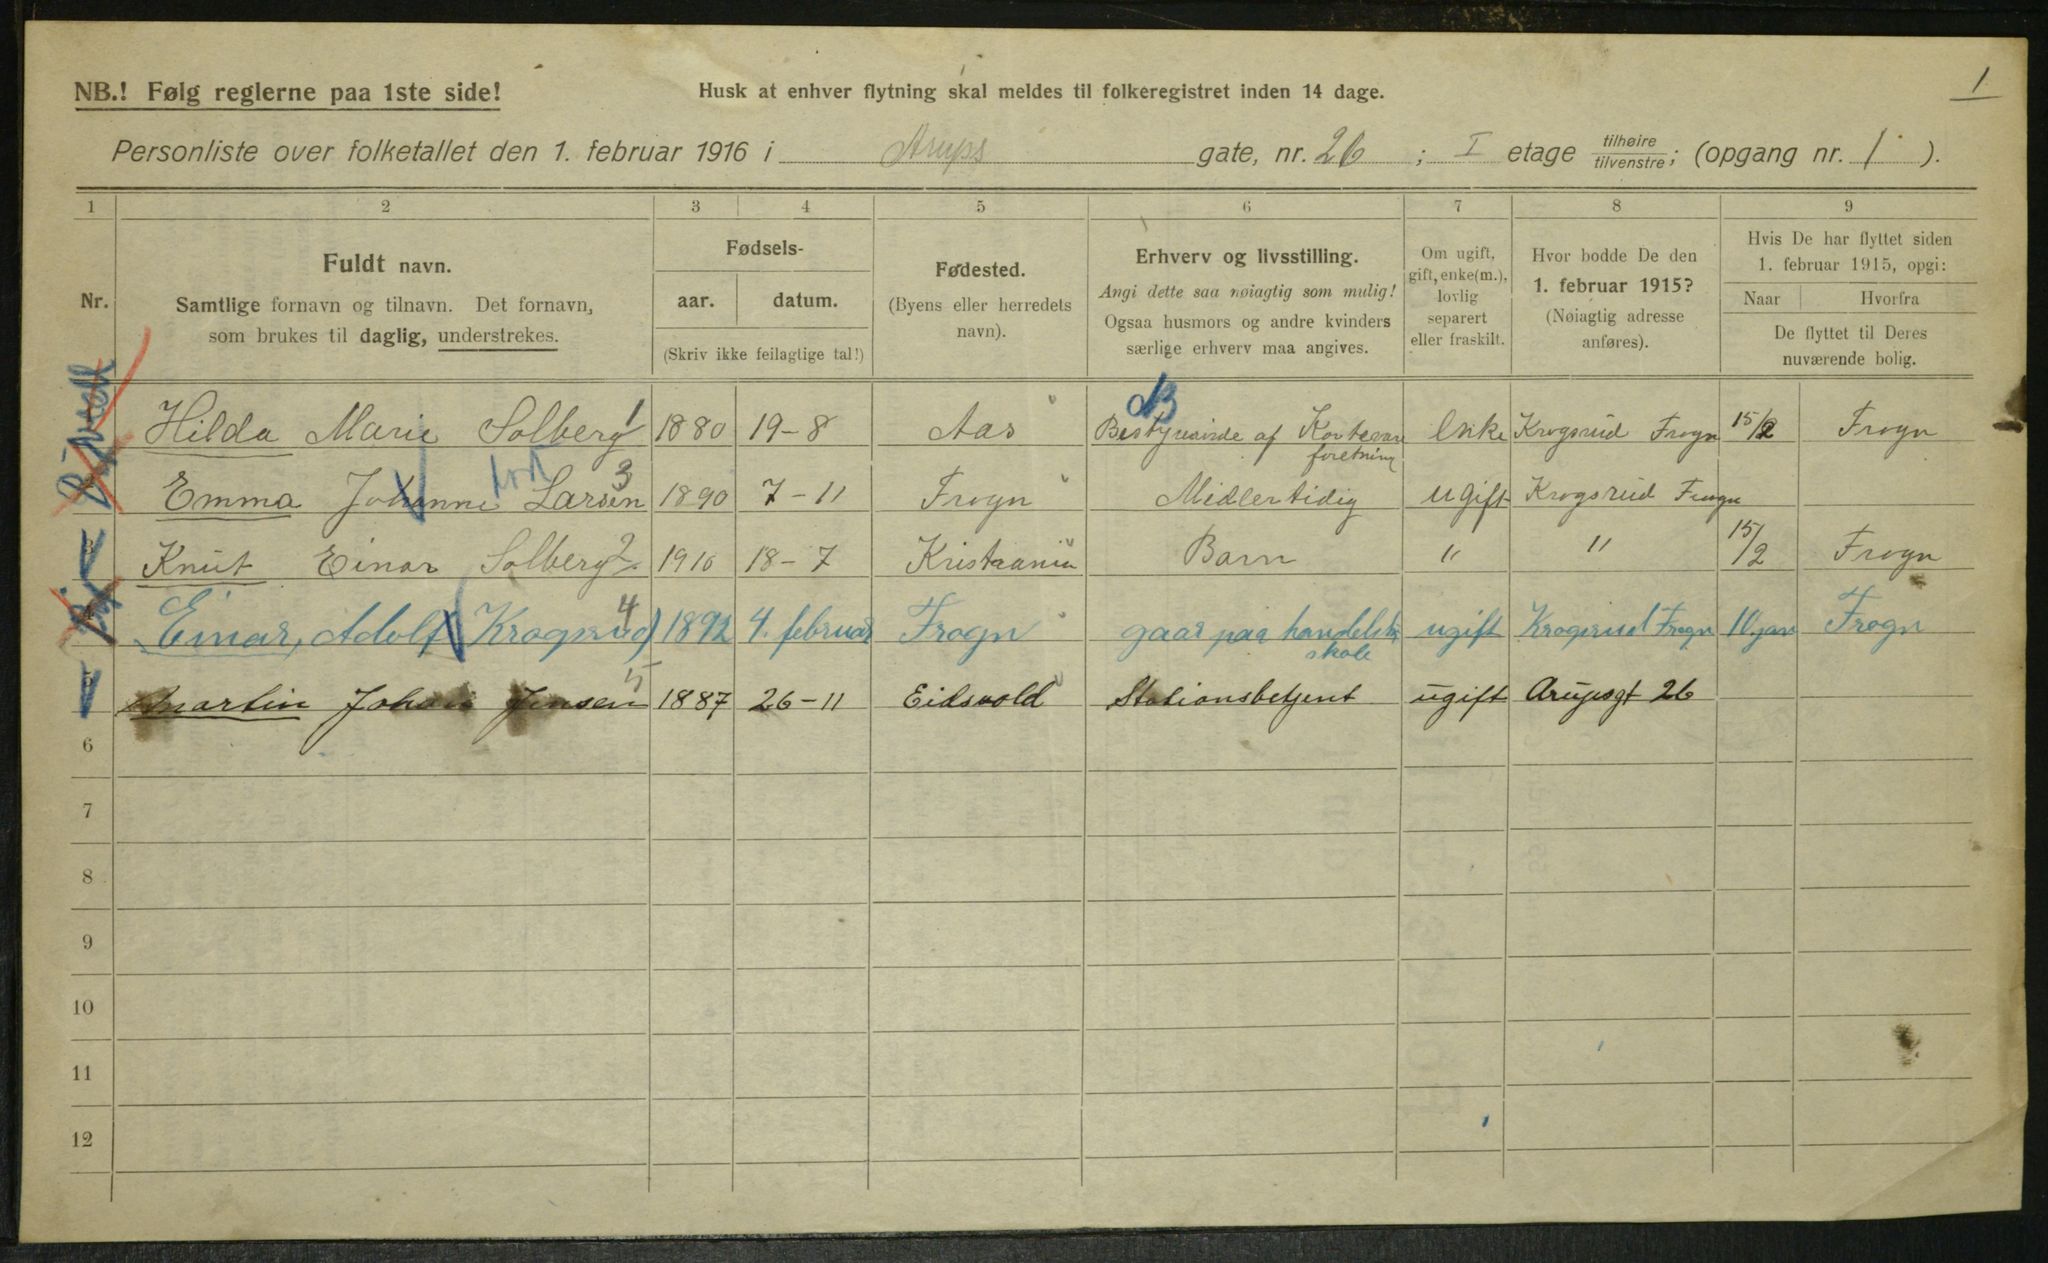 1
NB.! Følg reglerne paa 1ste side! Husk at enhver flytning skal meldes til folkeregistret inden 14 dage.
Personliste over folketallet den 1. februar 1916 i Arups gate, nr. 26 ; I etage tilhøire tilvenstre; (opgang nr. 1 ).
1 2 3 4 5 6 7 8 9
Nr.
Fuldt navn.
Samtlige fornavn og tilnavn. Det fornavn,
som brukes til daglig, understrekes.
Fødsels-
aar. datum.
(Skriv ikke feilagtige tal!)
Fødested.
(Byens eller herredets
navn).
Erhverv og livsstilling.
Angi dette saa nøiagtig som mulig!
Ogsaa husmors og andre kvinders
særlige erhverv maa angives.
Om ugift,
gift, enke(m.),
lovlig
separert
eller fraskilt.
Hvor bodde De den
1. februar 1915?
(Nøiagtig adresse
anføres).
Hvis De har flyttet siden
1. februar 1915, opgi:
Naar Hvorfra
De flyttet til Deres
nuværende bolig.
Hilda Marie Solberg 1 1880 19-8 Aas Bestyrerinde af Kortevare Enke Krogsrud Frogn 15/2 Frogn
foretning
Emma Johanne Larsen 3 1890 7-11 Frogn Midlertidig ugift Krogsrud Frogn
3 Knut Einar Solberg 2 1910 18-7 Kristiania Barn " " 15/2 Frogn
4 Einar, Adolf Krogsrud 4 1892 4. februar Frogn gaar paa handels ugift Krogsrud Frogn 10 jan Frogn
skole
5 Martin Johan Jensen 5 1887 26-11 Eidsvold Stationsbetjent ugift Arupsgt 26
6
7
8
9
10
11
12